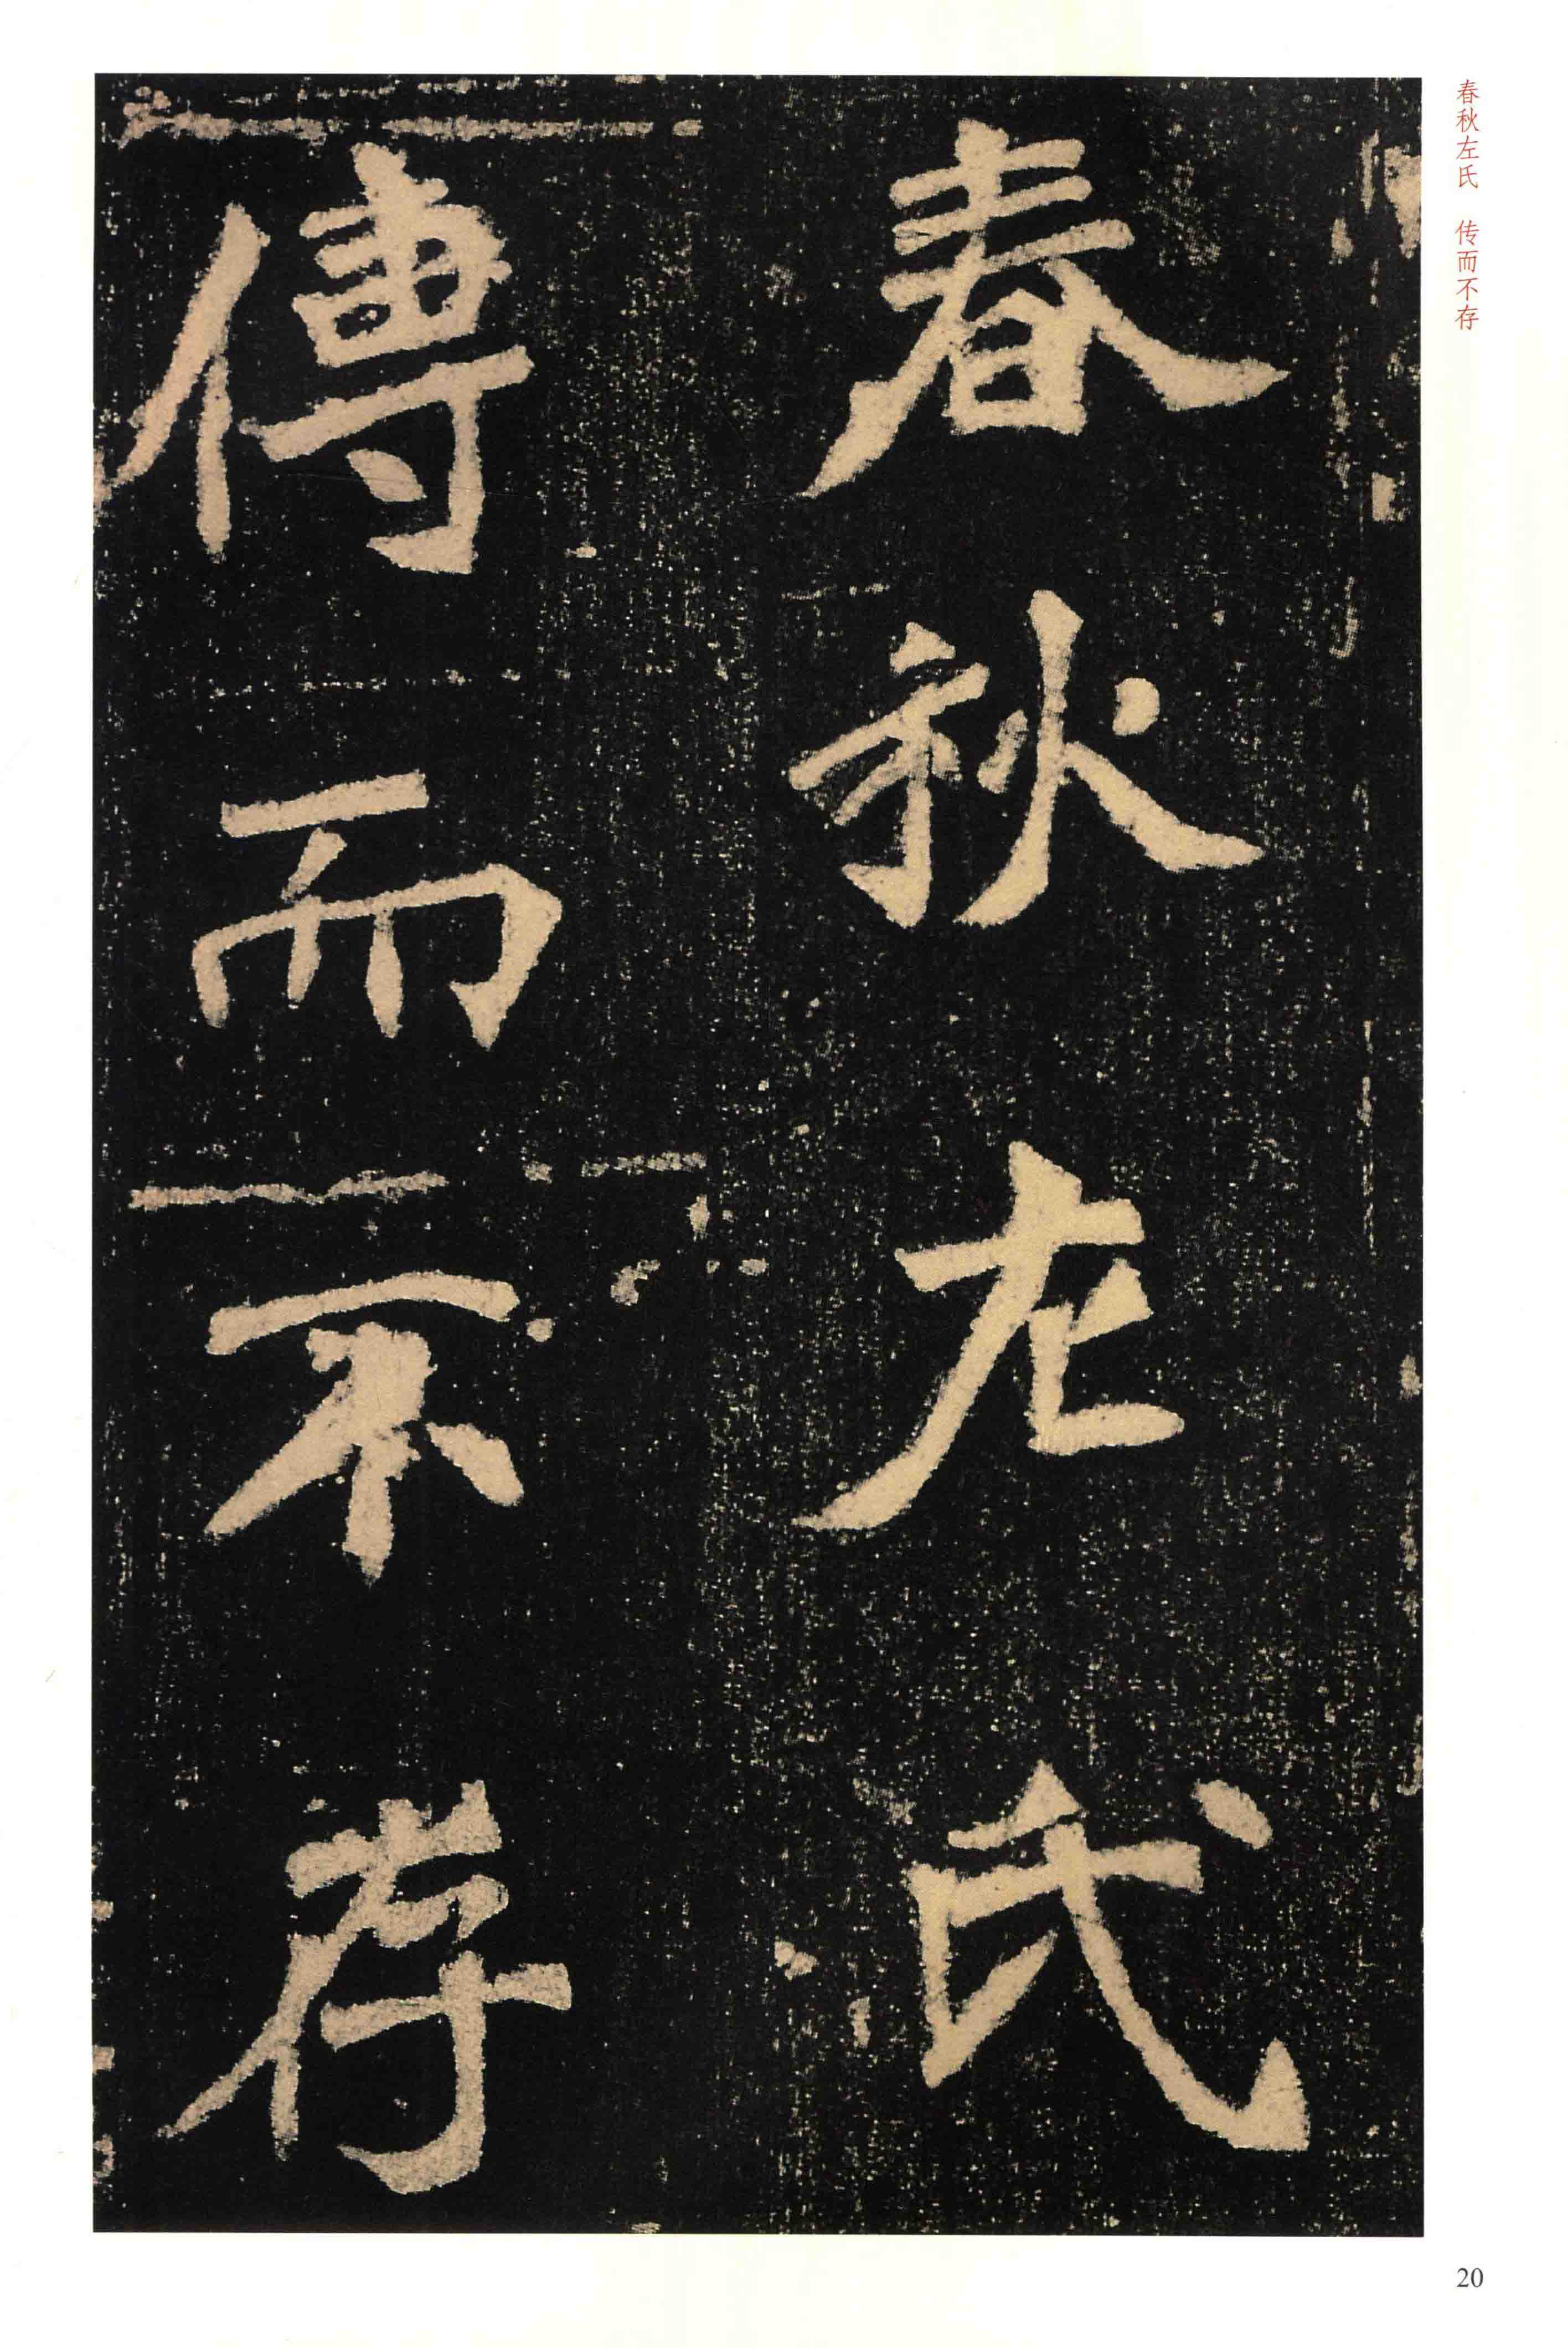 春秋左氏 传而不存
春秋左氏
傳而不存
20